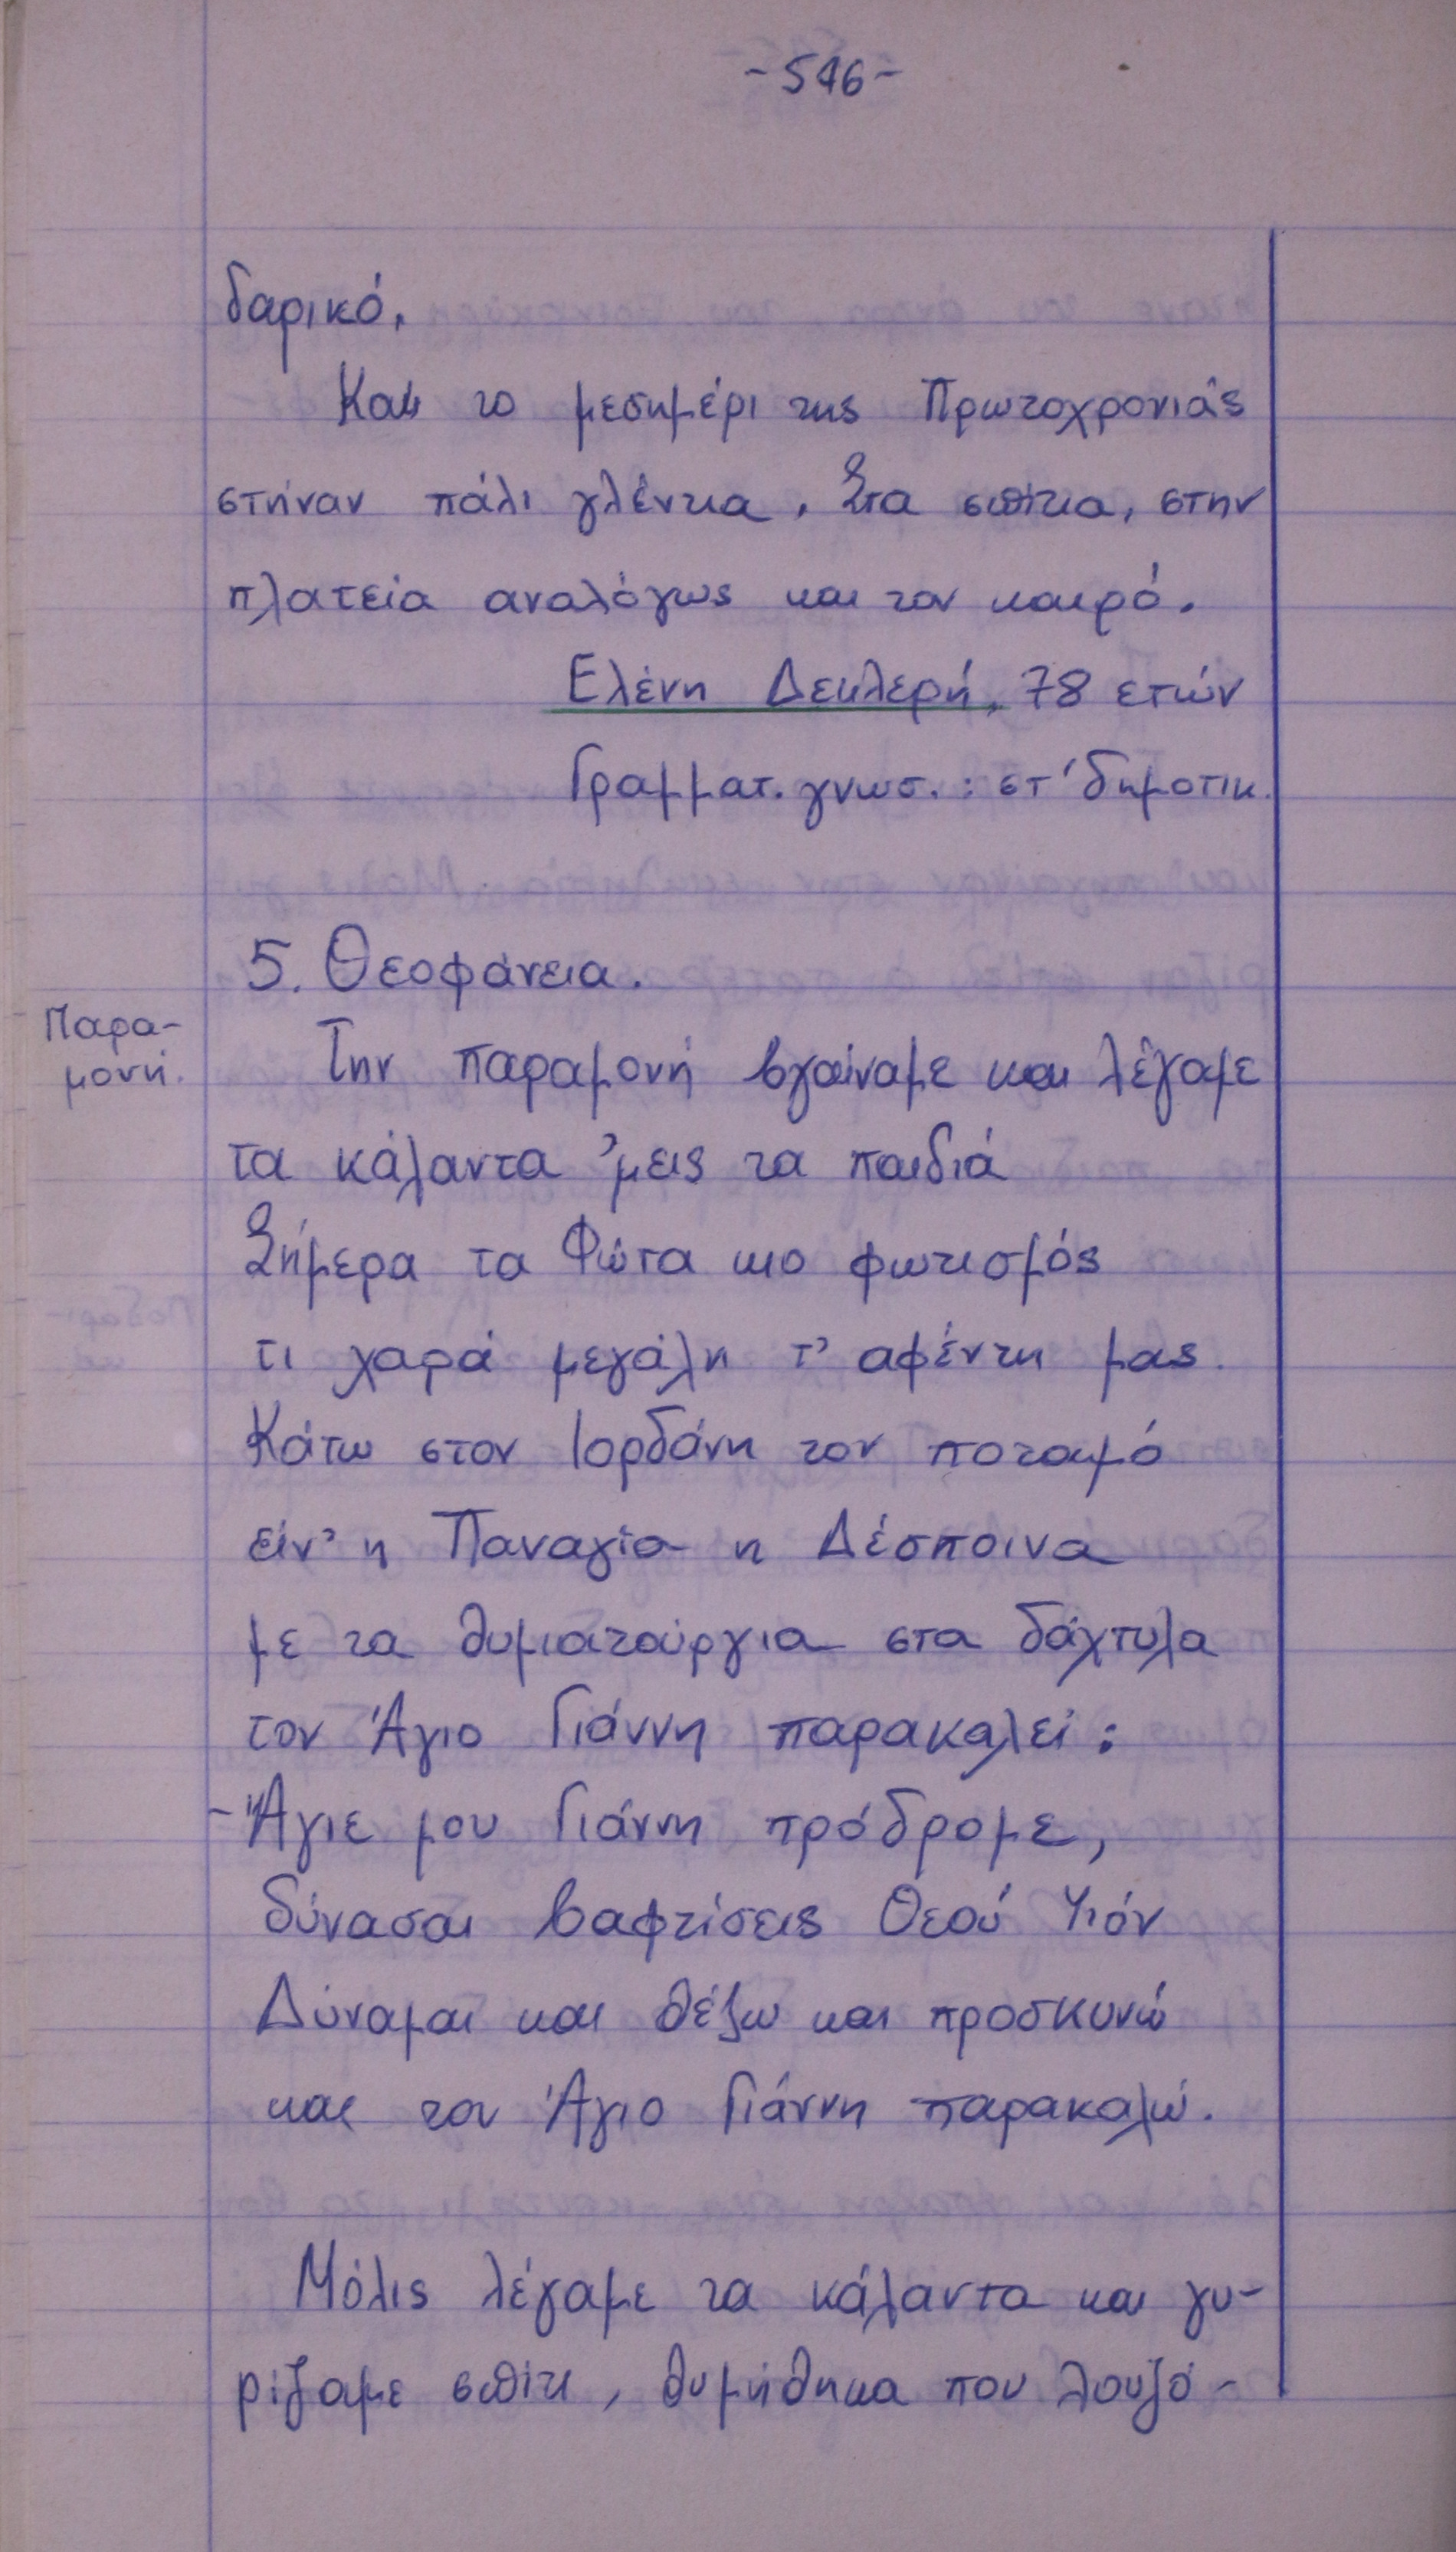 -546-
δαρικό.
Και το μεσημέρι της Πρωτοχρονιάς
στήναν πάλι γλέντια. Στα σπίτια, στην
πλατεία αναλόγως και τον καιρό.
Ελένη Δεκλερή, 78 ετών
Γραμματ. γνωσ. : στ' δημοτικ.
5. Θεοφάνεια.
Παρα-
μονή.
Την παραμονή βγαίναμε και λέγαμε
τα κάλαντα 'μεις τα παιδιά
Σήμερα τα Φώτα κιο φωτισμός
τι χαρά μεγάλη τ' αφέντη μας.
Κάτω στον Ιορδάνη τον ποταμό
είν' η Παναγία η Δέσποινα
με τα θυμιατούργια στα δάχτυλα
τον Άγιο Γιάννη παρακαλεί:
- Άγιε μου Γιάννη πρόδρομε,
δύνασαι βαφτίσεις Θεού Υιόν
Δύναμαι και θέλω και προσκυνώ
και τον Άγιο Γιάννη παρακαλώ.
Μόλις λέγαμε τα κάλαντα και γυ-
ρίζαμε σπίτι, θυμήθηκα που λουζό-